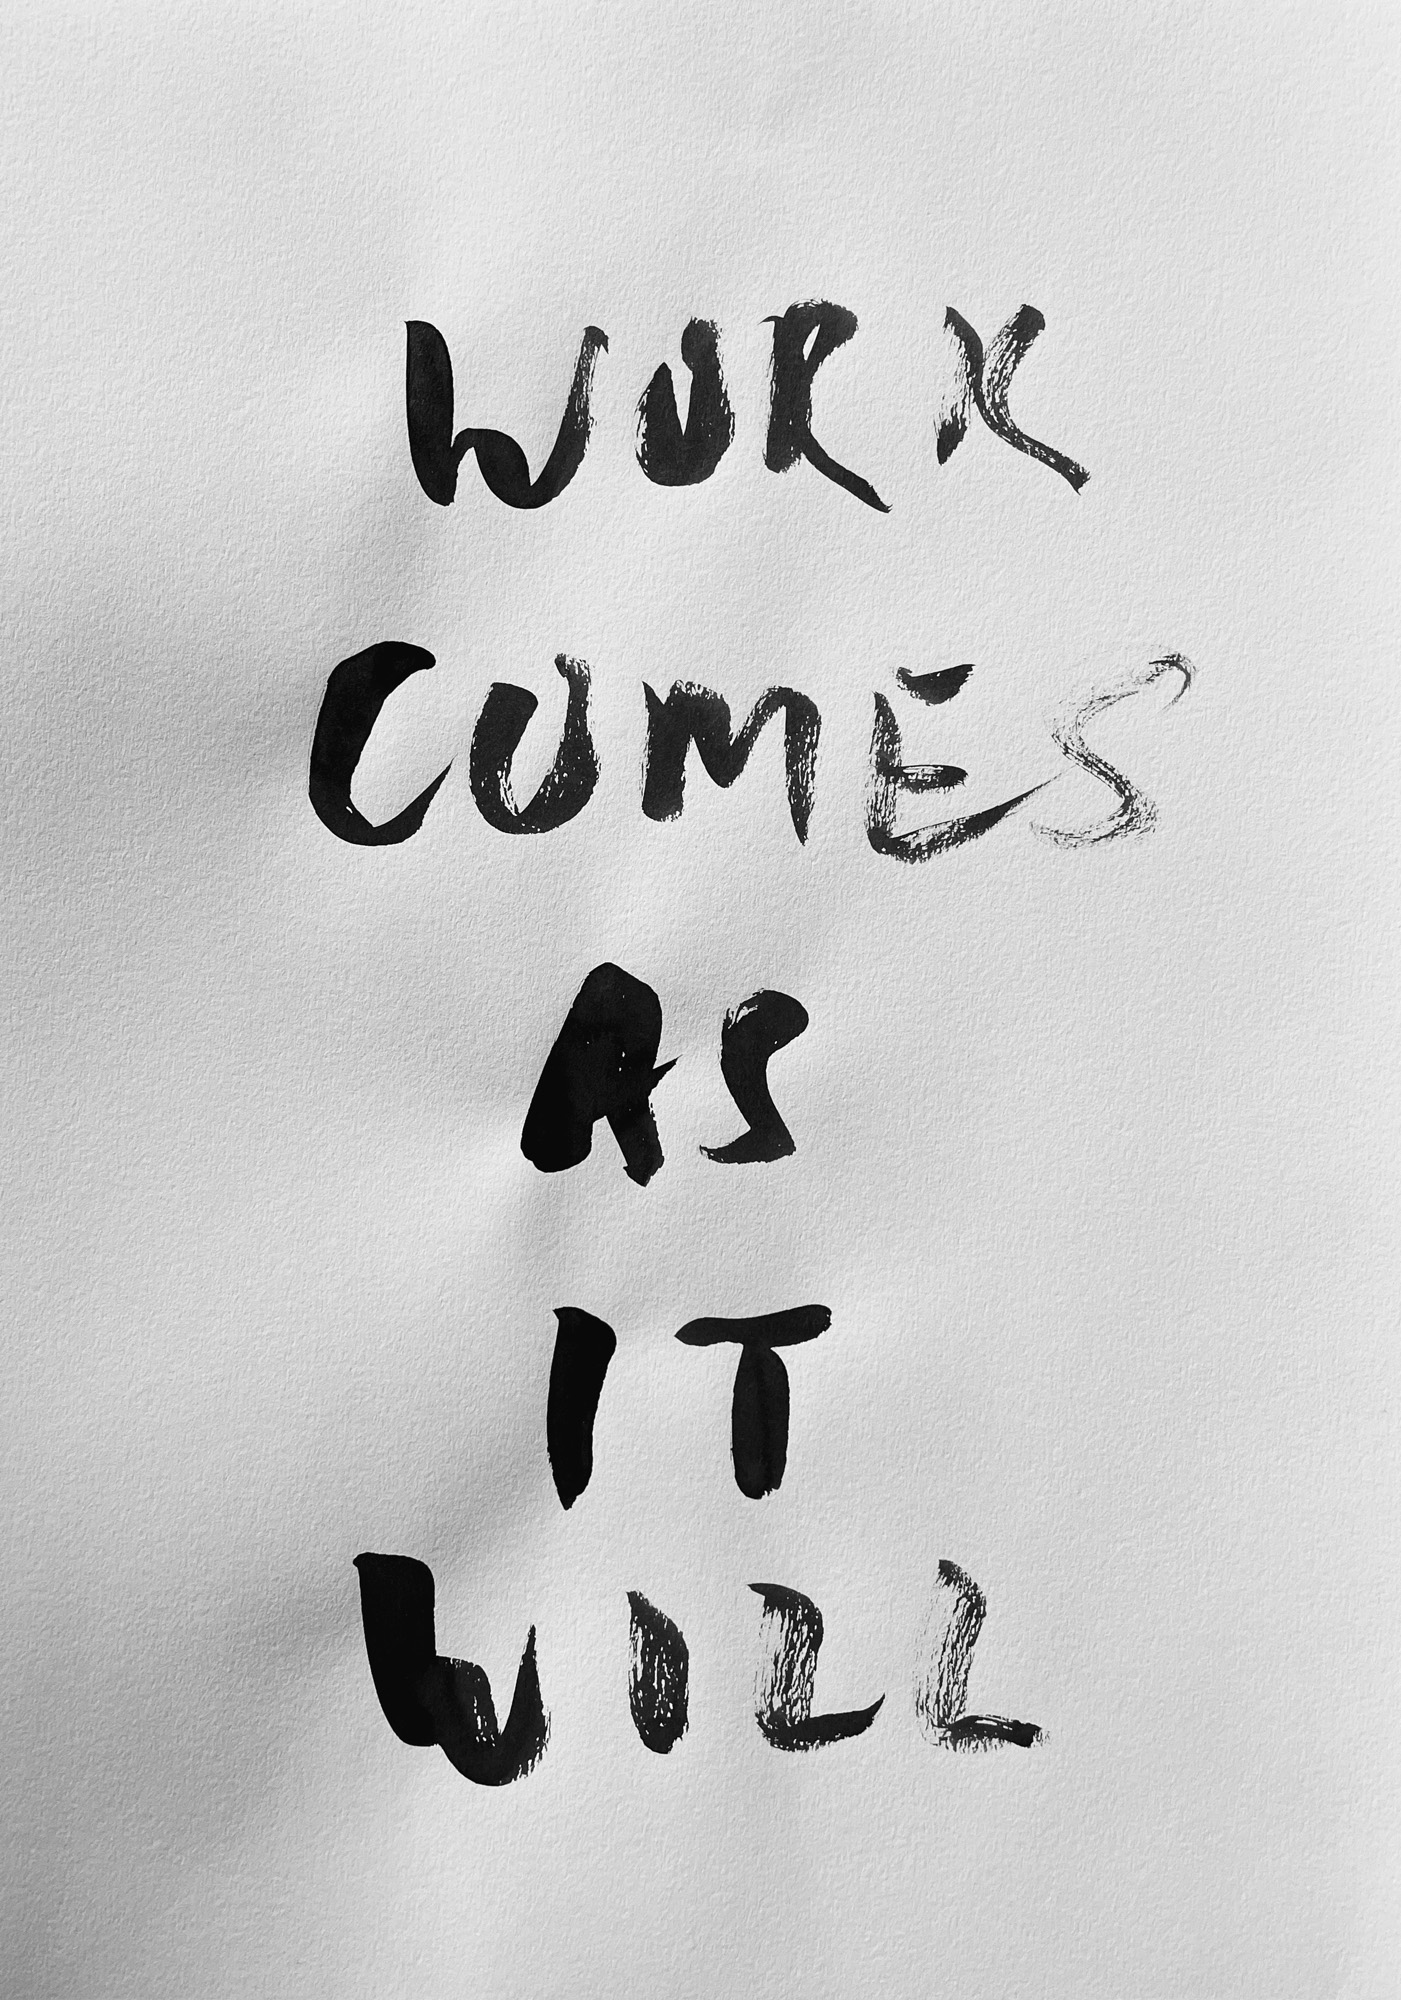 WORK
COMES
AS
IT
WILL